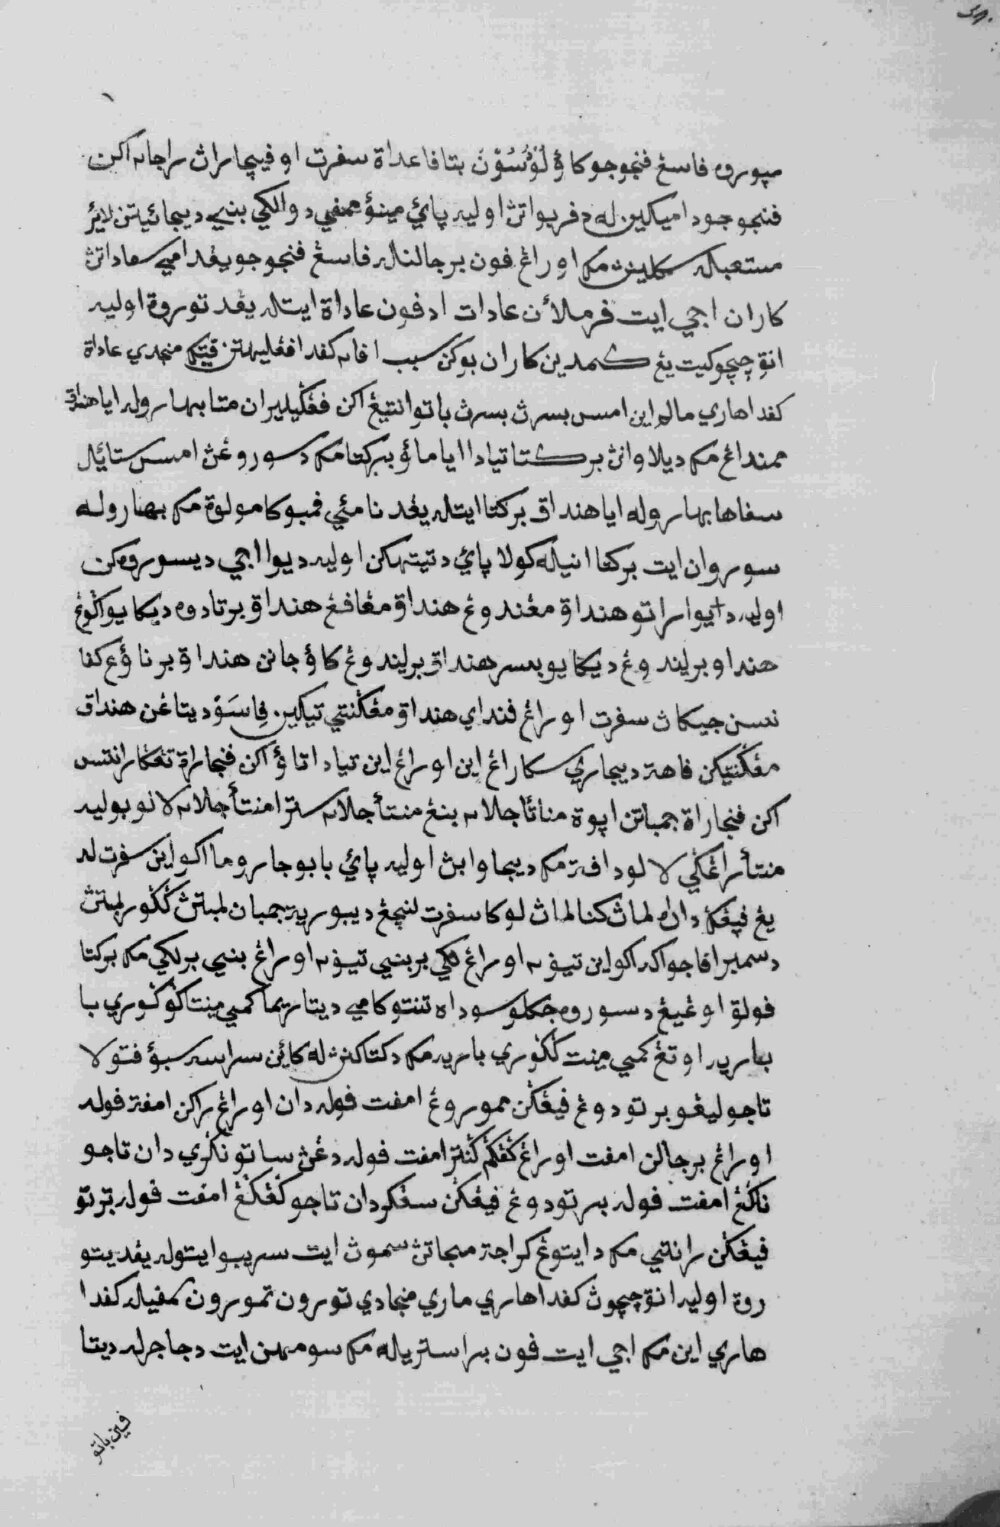 مپوروه فاسڠ فنجوجو كاؤ لؤسؤن بتافا عداة سفرت او فيچاراث راجاله اكن
فنجوجود اميكين له دفربواتڽ اوليه ڤائي مينؤ همفي دوالكي بنيي ديبجائيتن لاير
مستعبله سكلين مك اورڠ فون برجالنله فاسڠ فنجوجو يڠد اميي سعاداتڽ
كاران اجي ايت فرمولأن عادات ادفون عاداة ايتله يڠد توروة اوليه
انق چوچو كيت يڠ كمدين كاران بوكن سبب افاله كفد افڠليهتن قيتك منجدي عاداة
كفد اهاري مالم اين امس بسرڽ بسرڽ باتو انتيڠ اكن فڠكيليران متا بهاروله ايا هنداق
ممنداڠ مك ديلاوانڽ بركتا تيادا ايا ماؤ بركتامك دسوروغڽ امس ستائيل
سفاها بهاروله ايا هنداق بركتا ايتله يڠد نامئي فمبوكا مولوة مك بهاروله
سوروان ايت بركفا انيله كولا ڤائي دتيتهكن اوليه ديوا اجي ديسوروهكن
اوليه دايوا راتو هنداق مڠندوڠ هنداق مڠافڠ هنداق برتادوه ديكايو اڬوڠ
هنداو برليندوڠ ديكايو بسر هنداق برليندوڠ كاؤ جانن هنداق برناؤڠ كفا
نسن جيكاڽ سفرت اورڠ فنداي هنداق مڠڬنتي تيكين فاسؤ ديتاڠن هنداق
مڠڬنتيكن فاهت ديجاري سكارڠ اين اورڠ اين تياد اتاؤ اكن فنجاراة تڠكارانتس
اكن فنجاراة جمباتن اپوة مناتا جلاله بنڠ منتأ جلاله سترا منتأ جلاله لانو بوليه
منتأ راڠكي لالود افت مك ديجاوابڽ اوليه ڤائي بابوجا روما اكو اين سفرت له
يڠ فيڠڬ دان لماڽ كنا لماڽ لوكا سفرت لنچڠ ديبوريت جمبان لمبتڽ كڬور لمبتڽ
دسمبر افاجواكه اكو اين تيفله اورڠ لكي بربنيي تيفله اورڠ بنيي برلكي مك بركتا
فولق اوڠيڠ دسوروه جكلو سوداه تنتو كاميي ديتاريما كميي مينتا كوڬوري با
باريه اوتڠ كميي مينت كڬوري باريه مك دكتاكنڽ له كائن سراسه سبؤ فتولا
تاجو ليڠو برتودوڠ فيڠڬن مموروڠ امفت فوله دان اورڠ راكن امفت فوله
اورڠ برجالن امفت اورڠ كڤڬڠ كنترا امفت فوله دڠن ساتو نڬري دان تاجو
نكڠ امفت فوله برتودوڠ فيڠڬن سڠكر دان تاجو كڠكڠ امفت فوله برتو
فيڠڬن رانتي مك دايتوڠ كراجت منجاتڽ سموڽ ايت سريبو ايتوله يڠديتو
روة اوليه انق چوچوڽ كفد اهاري ماري منجادي تورون تمورون سمفيله كفدا
هاري اين مك اجي ايت فون براسترياله مك سومهن ايت دجاجرله ديتا
فين باتو